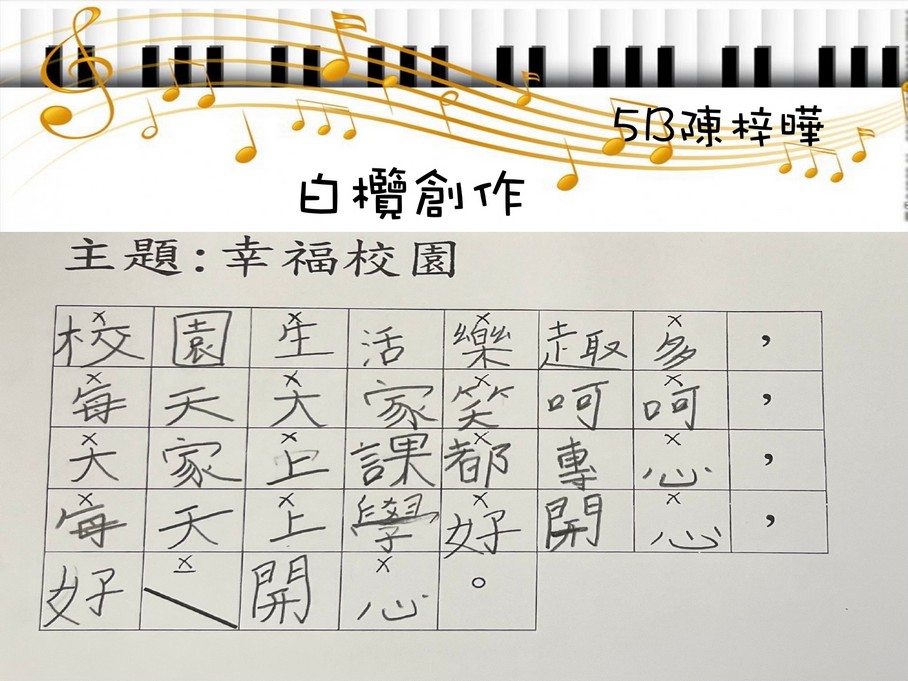 5B陳梓曄
白欖創作
主題:幸福校園
校園生活樂趣多，
每天大家笑呵呵，
大家上課都專心，
每天上學好開心，
好開心。